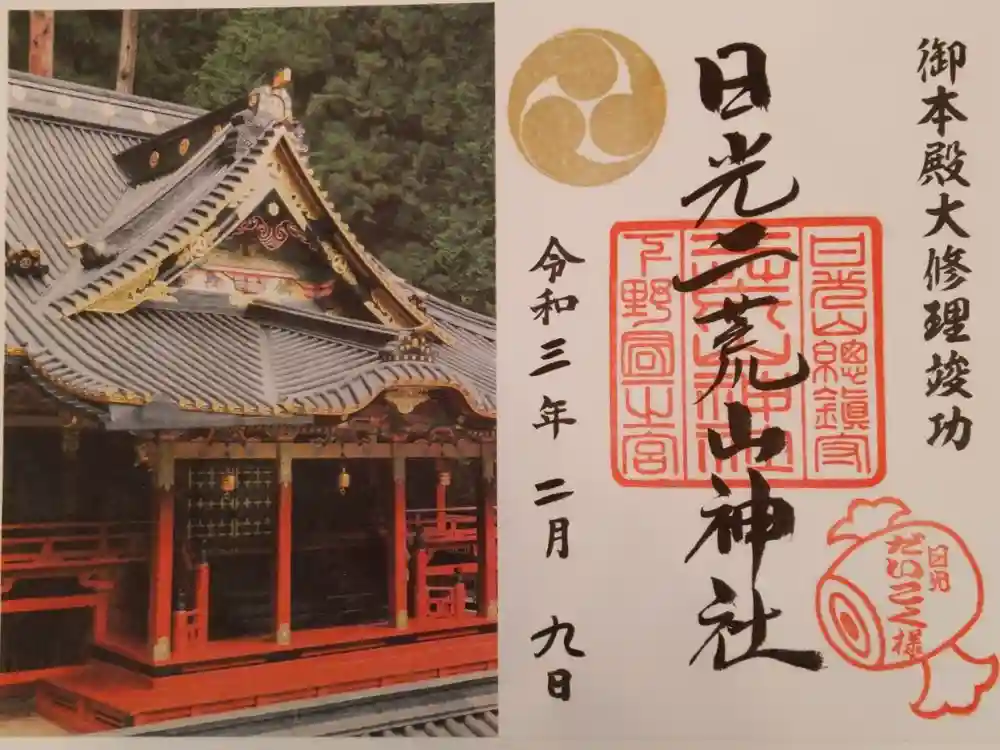 御本殿大修理竣功
日光二荒山神社
令和三年二月九日
日光山總鎮守
二荒山神社
下野國一之宮
日光
だいこく様